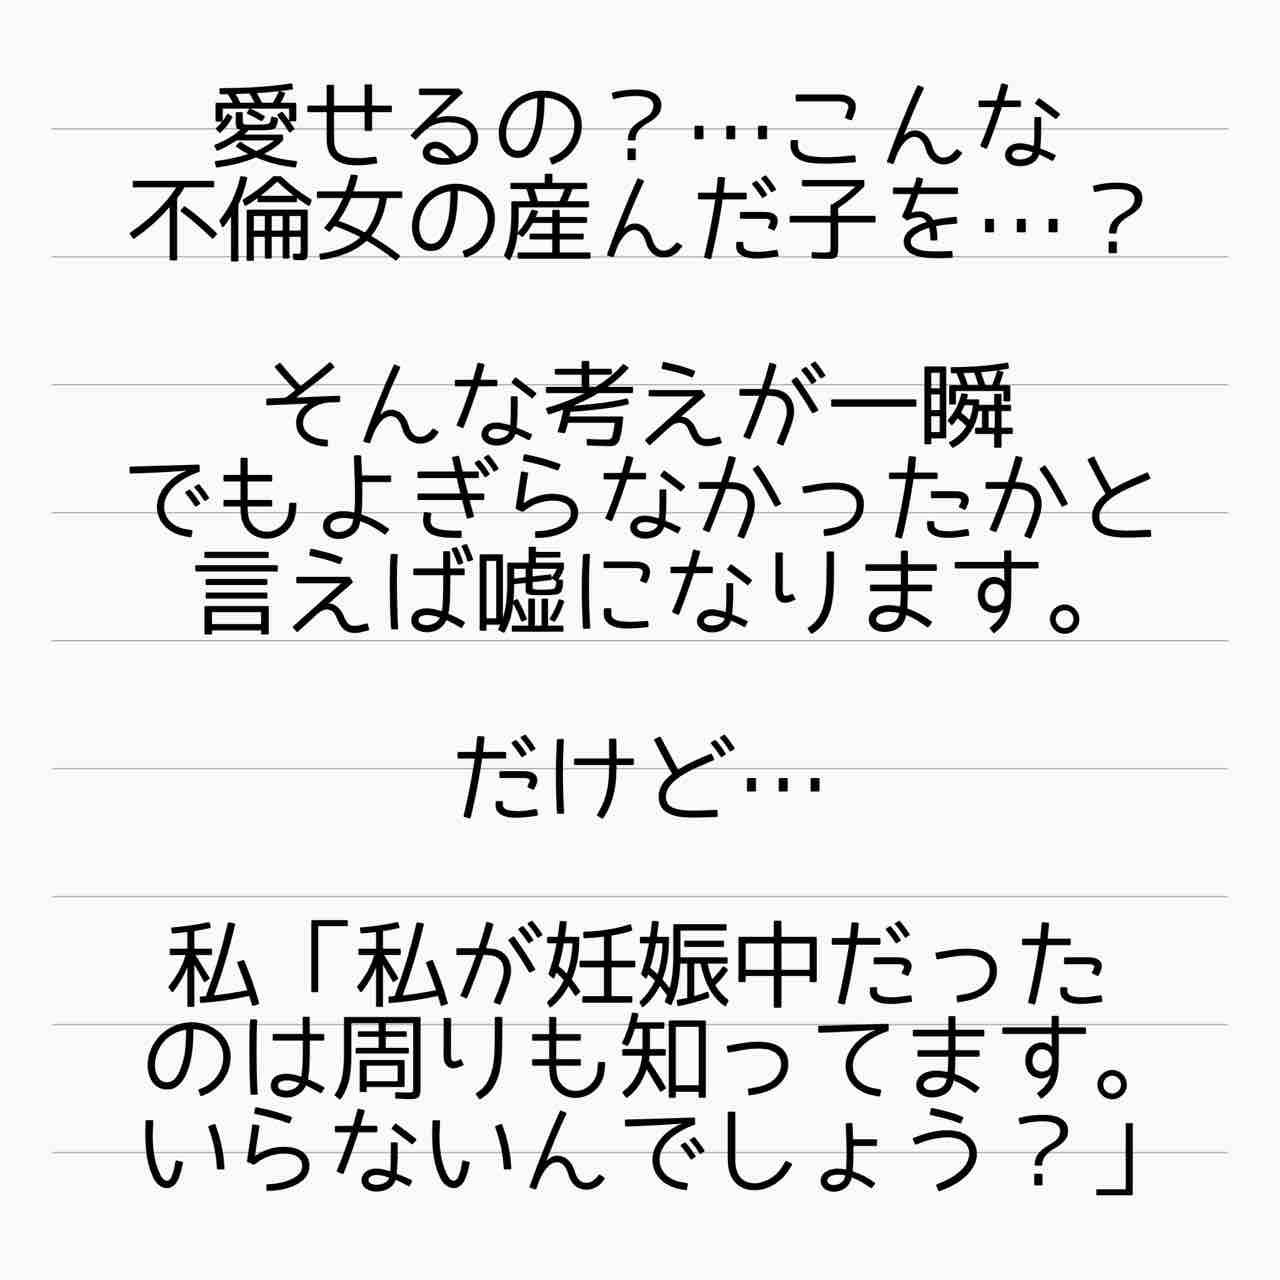 愛せるの？…こんな
不倫女の産んだ子を…？
そんな考えが一瞬
でもよぎらなかったかと
言えば嘘になります。
だけど…
私「私が妊娠中だった
のは周りも知ってます。
いらないんでしょう？」